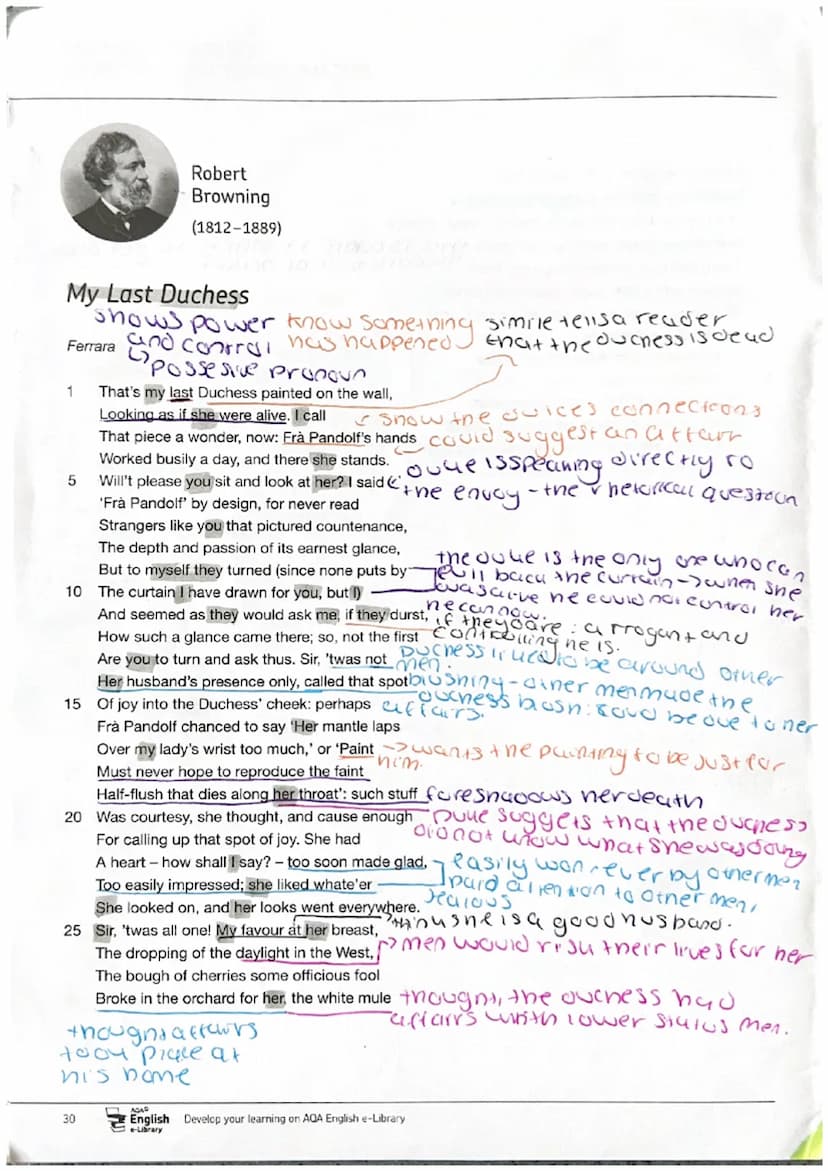 Robert
Browning
(1812–1889)
My Last Duchess
shows power know something simile tells a reader
Ferrara and control has happened that the duchess is dead
possesive pronoun
1 That's my last Duchess painted on the wall,
Looking as if she were alive. I call show the duices connections
That piece a wonder, now: Frà Pandolf's hands could suggest an affair
Worked busily a day, and there she stands. duke is speaking directly to
5 Will't please you sit and look at her? I said the envoy - the rhetorical question
'Frà Pandolf' by design, for never read
Strangers like you that pictured countenance,
The depth and passion of its earnest glance, the duke is the only one who can
But to myself they turned (since none puts by pull back the curtain -> when she
10 The curtain I have drawn for you, but I) was alive he could not control her
And seemed as they would ask me, if they durst, he can now. if they dare: arrogant and
How such a glance came there; so, not the first controlling he is.
Are you to turn and ask thus. Sir, 'twas not Duchess liked to be around other men.
Her husband's presence only, called that spot blushing - other men made the
15 Of joy into the Duchess' cheek: perhaps duchess blush: could be due to her affairs.
Frà Pandolf chanced to say 'Her mantle laps
Over my lady's wrist too much,' or 'Paint -> wants the painting to be just for him.
Must never hope to reproduce the faint
Half-flush that dies along her throat': such stuff foreshadows her death
20 Was courtesy, she thought, and cause enough Duke suggets that the duchess
For calling up that spot of joy. She had did not know what she was doing
A heart – how shall I say? – too soon made glad, easily won over by other men
Too easily impressed; she liked whate'er paid attention to other men,
She looked on, and her looks went everywhere. jealous
25 Sir, 'twas all one! My favour at her breast, thinks he is a good husband.
The dropping of the daylight in the West, men would risk their lives for her
The bough of cherries some officious fool
Broke in the orchard for her, the white mule thought, the duchess had
affairs with lower status men.
thought affairs
took place at
his home
30 AQA English e-Library Develop your learning on AQA English e-Library